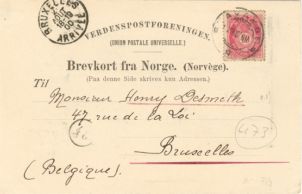 BRUXELLES
ARRIVÉE
VERDENSPOSTFORENINGEN.
(UNION POSTALE UNIVERSELLE.)
Brevkort fra Norge. (Norvège).
(Paa denne Side skrives kun Adressen.)
Til
Monsieur Henry Desmeth
47 rue de la Loi
Bruxelles
(Belgique).
473